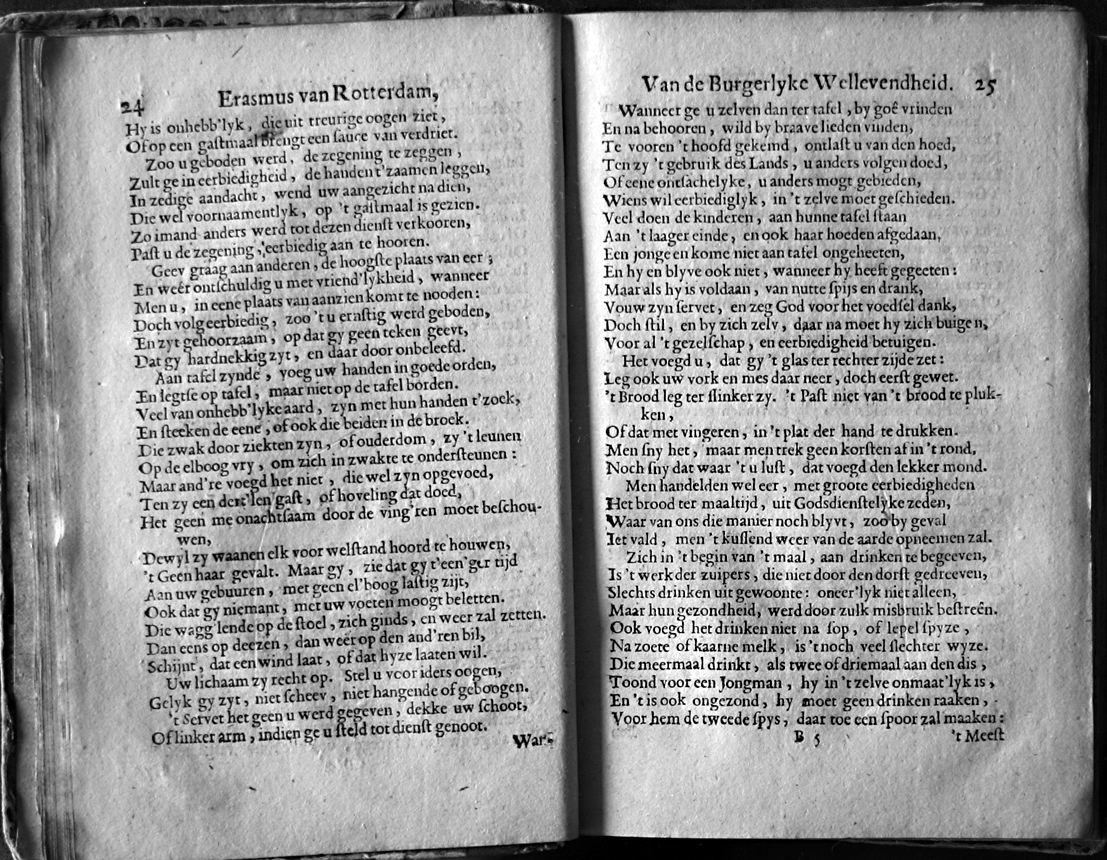 24 Erasmus van Rotterdam,
Hy is onhebb'lyk, die uit treurige oogen ziet,
Of op een gaſtmaal brengt een ſauce van verdriet.
Zoo u geboden werd, de zegening te zeggen,
Zult ge in eerbiedigheid, de handen t'zaamen leggen,
In zedige aandacht, wend uw aangezicht na dien,
Die wel voornaamentlyk, op 't gaſtmaal is gezien.
Zo imand anders werd tot dezen dienſt verkooren,
Paſt u de zegening, eerbiedig aan te hooren.
Geev graag aan anderen, de hoogſte plaats van eer;
En weêr ontſchuldig u met vriend'lykheid, wanneer
Men u, in eene plaats van aanzien komt te nooden:
Doch volg eerbiedig, zoo 't u ernſtig werd geboden,
En zyt gehoorzaam, op dat gy geen teken geevt,
Dat gy hardnekkig zyt, en daar door onbeleefd.
Aan tafel zynde, voeg uw handen in goede orden,
En legtſe op tafel, maar niet op de tafel borden.
Veel van onhebb'lyke aard, zyn met hun handen t'zoek,
En ſteeken de eene, of ook die beiden in de broek.
Die zwak door ziekten zyn, of ouderdom, zy 't leunen
Op de elboog vry, om zich in zwakte te onderſteunen:
Maar and're voegd het niet, die wel zyn opgevoed,
Ten zy een dert'len gaſt, of hoveling dat doed,
Het geen me onachtſaam door de ving'ren moet beſchou-
wen,
Dewyl zy waanen elk voor welſtand hoord te houwen,
't Geen haar gevalt. Maar gy, zie dat gy t'een'ger tijd
Aan uw gebuuren, met geen el'boog laſtig zijt,
Ook dat gy niemant, met uw voeten moogt beletten.
Die wagg'lende op de ſtoel, zich ginds, en weer zal zetten.
Dan eens op deezen, dan weêr op den and'ren bil,
Schijnt, dat een wind laat, of dat hyze laaten wil.
Uw lichaam zy recht op. Stel u voor iders oogen,
Gelyk gy zyt, niet ſcheev, niet hangende of geboogen.
't Servet het geen u werd gegeven, dekke uw ſchoot,
Of linker arm, indien ge u ſteld tot dienſt genoot.
Wan-
Van de Burgerlyke Wellevendheid. 25
Wanneer ge u zelven dan ter tafel, by goê vrinden
En na behooren, wild by braave lieden vinden,
Te vooren 't hoofd gekemd, ontlaſt u van den hoed,
Ten zy 't gebruik des Lands, u anders volgen doed,
Of eene ontſachelyke, u anders mogt gebieden,
Wiens wil eerbiediglyk, in 't zelve moet geſchieden.
Veel doen de kinderen, aan hunne tafel ſtaan
Aan 't laager einde, en ook haar hoeden afgedaan,
Een jonge en kome niet aan tafel ongeheeten,
En hy en blyve ook niet, wanneer hy heeft gegeeten:
Maar als hy is voldaan, van nutte ſpijs en drank,
Vouw zyn ſervet, en zeg God voor het voedſel dank,
Doch ſtil, en by zich zelv, daar na moet hy zich buigen,
Voor al 't gezelſchap, en eerbiedigheid betuigen.
Het voegd u, dat gy 't glas ter rechter zijde zet:
Leg ook uw vork en mes daar neer, doch eerſt gewet.
't Brood leg ter ſlinker zy. 't Paſt niet van 't brood te pluk-
ken,
Of dat met vingeren, in 't plat der hand te drukken.
Men ſny het, maar men trek geen korſten af in 't rond,
Noch ſny dat waar 't u luſt, dat voegd den lekker mond.
Men handelden wel eer, met groote eerbiedigheden
Het brood ter maaltijd, uit Godsdienſtelyke zeden,
Waar van ons die manier noch blyvt, zoo by geval
Iet vald, men 't kuſſend weer van de aarde opneemen zal.
Zich in 't begin van 't maal, aan drinken te begeeven,
Is 't werk der zuipers, die niet door den dorſt gedreeven,
Slechts drinken uit gewoonte: oneer'lyk niet alleen,
Maar hun gezondheid, werd door zulk misbruik beſtreên.
Ook voegd het drinken niet na ſop, of lepel ſpyze,
Na zoete of kaarne melk, is 't noch veel ſlechter wyze.
Die meermaal drinkt, als twee of driemaal aan den dis,
Toond voor een Jongman, hy in 't zelve onmaat'lyk is,
En 't is ook ongezond, hy moet geen drinken raaken,
Voor hem de tweede ſpys, daar toe een ſpoor zal maaken:
B 5 't Meeſt